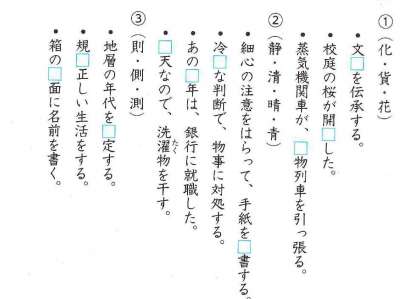 ①（化・貨・花）
• 文□を伝承する。
• 校庭の桜が開□した。
• 蒸気機関車が、□物列車を引っ張る。
②（静・清・晴・青）
• 細心の注意をはらって、手紙を□書する。
• 冷□な判断で、物事に対処する。
• あの□年は、銀行に就職した。
• □天なので、洗濯物を干す。
たく
③（則・側・測）
• 地層の年代を□定する。
• 規□正しい生活をする。
• 箱の□面に名前を書く。